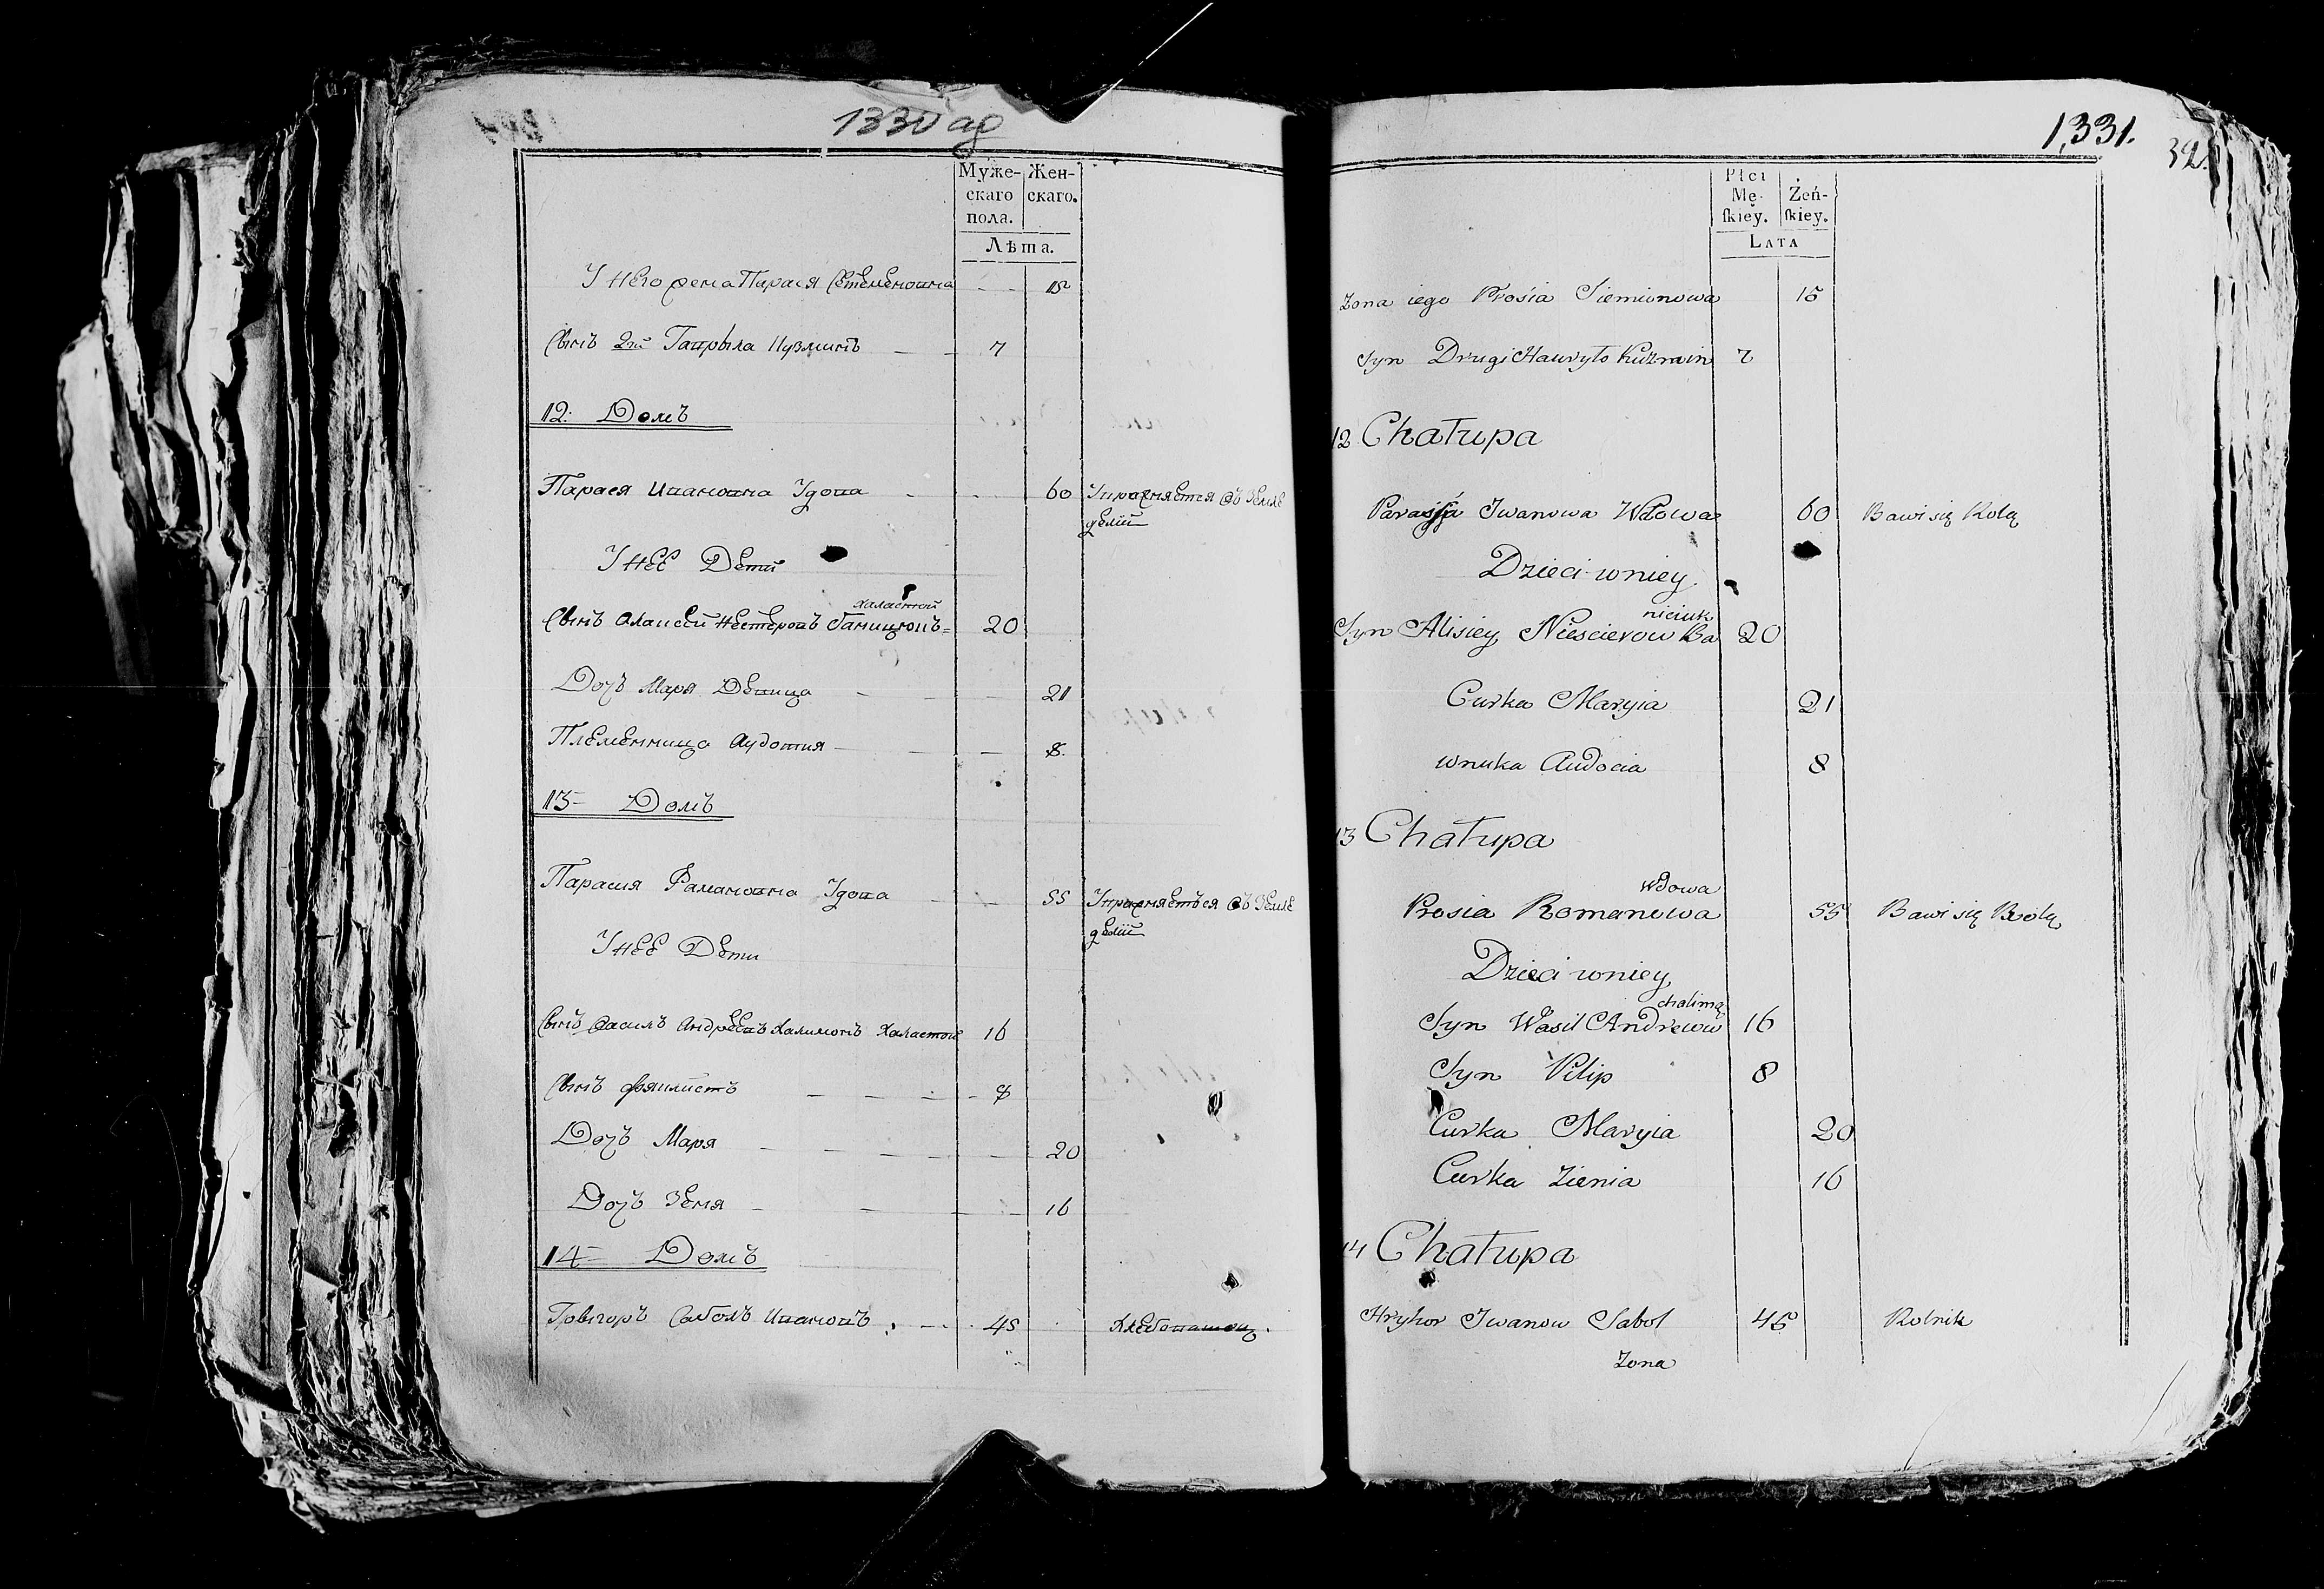 1330 ад
Муже-
скаго
пола.
Жен-
скаго.
Лѣта.
У него жена Парася Сетеменовна 15
Сынъ 2й Гаврыла Кузминъ 7
12: Домъ
Парася Ивановна Удова 60 Упражняется въ земле
делии
У нее Дети
халастой
Сынъ Алаисей Нестеровъ Баницювъ= 20
Дочъ Маря Девица 21
Племенница Аудотия 8.
13- Домъ
Парасия Рамановна Удова 55 Упражняеться въ земле
делии
У нее Дети
Сынъ Василъ Андреевъ Халимонъ Халастой 16
Сынъ 8
Дочъ Маря 20
Дочъ Зеня 16
14- Домъ
Грыгоръ Саболъ Ивановъ 45 Хлебопашец.
1,331.
32.
Płci
Mę-
skiey.
Żeń-
skiey.
LATA
Zona iego Prośia Siemionowa 15
Syn Drugi Hawryło Kuzmin 7
12 Chałupa
Parasja Iwanowa Wdowa 60 Bawi się Rolą
Dzieci w niey
niciuk
Syn Alisiey Niescierow Ba 20
Curka Maryia 21
wnuka Audocia 8
13 Chałupa
wdowa
Prosia Romanowa 55 Bawi się Rolą
Dzieci w niey
chalima
Syn Wasil Andreiow 16
Syn Pilip 8
Curka Maryia 20
Curka Zienia 16
14 Chałupa
Hryhor Iwanow Sabol 45 Rolnik
Zona